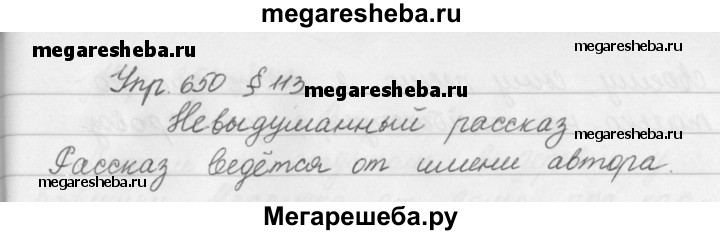 megaresheba.ru
megaresheba.ru
megaresheba.ru
Упр. 650 § 113
megaresheba.ru
Невыдуманный рассказ
megaresheba.ru
Рассказ ведётся от имени автора.
megaresheba.ru
megaresheba.ru
Мегарешеба.ру